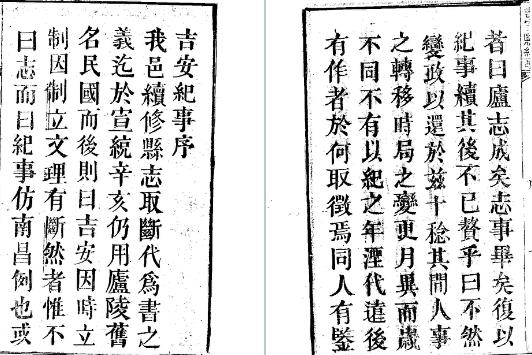 吉安紀事序
我邑續修縣志取斷代爲書之
義迄於宣統辛亥仍用廬陵舊
名民國而後則曰吉安因時立
制因制立文理有斷然者惟不
曰志而曰紀事仿南昌例也或
者曰廬志成矣志事畢矣復以
紀事續其後不已贅乎曰不然
變政以還於茲十稔其間人事
之轉移時局之變更月異而歲
不同不有以紀之年湮代遠後
有作者於何取徵焉同人有鑒